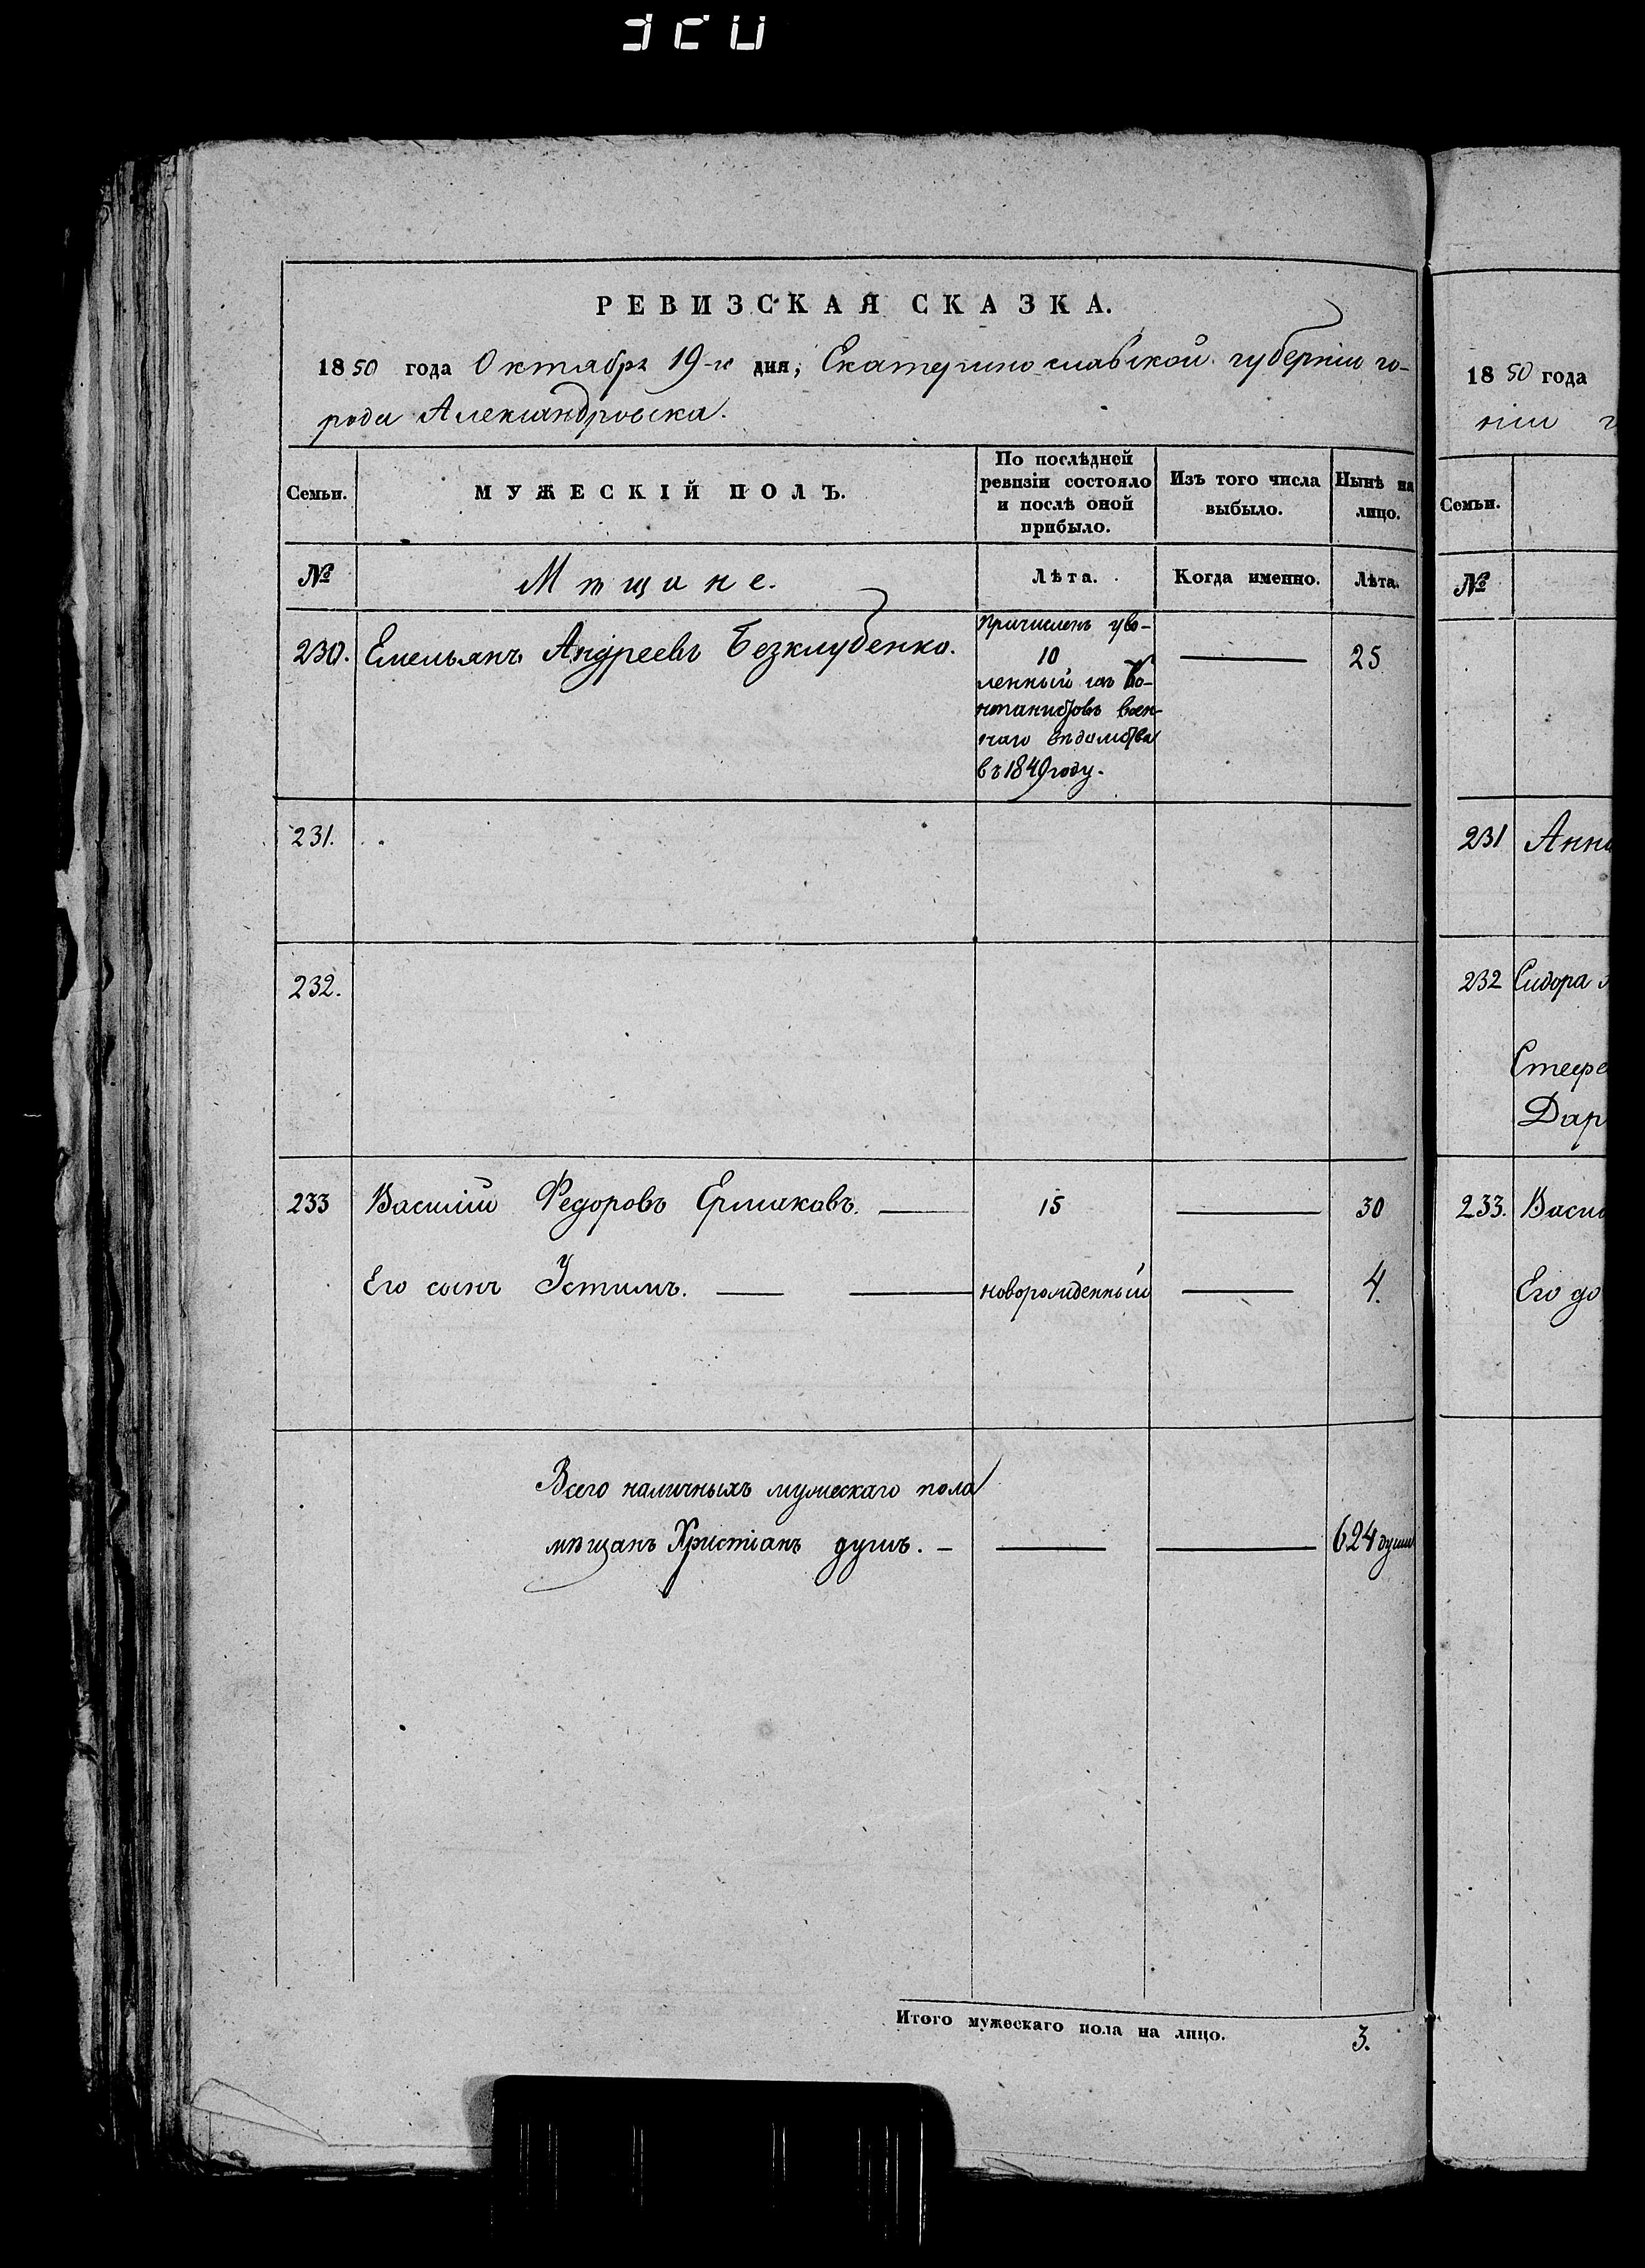 РЕВИЗСКАЯ СКАЗКА.
1850 года Октября 19-го дня, Екатеринославской губерніи го-
рода Александровска.
Семьи.
МУЖЕСКІЙ ПОЛЪ.
По послѣдней
ревизіи состояло
и послѣ оной
прибыло.
Изъ того числа
выбыло.
Нынѣ на
лицо.
№
Мѣщане.
Лѣта.
Когда именно.
Лѣта.
230. Емельянъ Андреевъ Безклубенко. 25
Причисленъ уво-
10
ленный изъ Ка-
нтонистовъ воен-
наго вѣдомства
въ 1849 году.
231.
232.
233 Василій Федоровъ Ермаковъ. 15 30
Его сынъ Устимъ. новорожденный 4.
Всего наличныхъ мужескаго пола
мѣщанъ Христіанъ душъ. 624 души
Итого мужескаго пола на лицо. 3.
1850 года
ніи
Семьи.
№
231 Анна
232 Сидора
Стефа
Дар
233. Васи
Его до